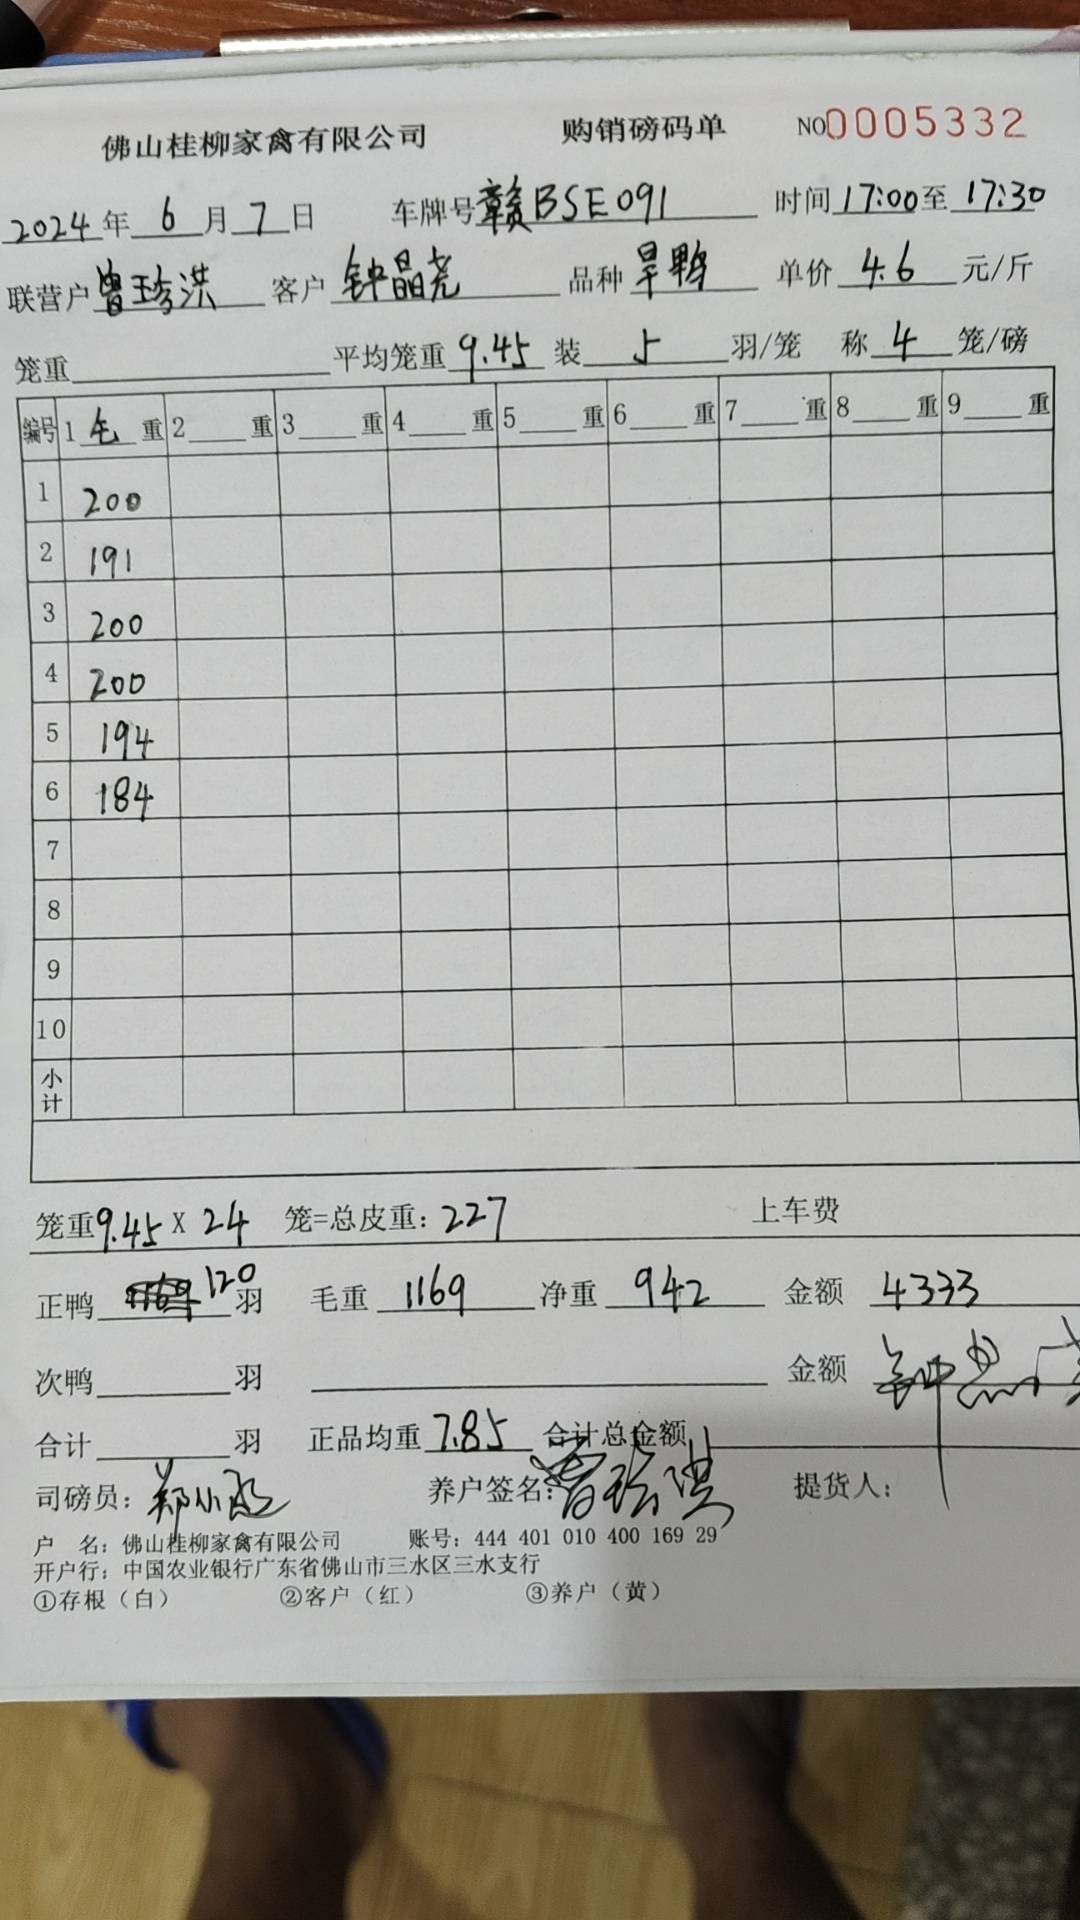 佛山桂柳家禽有限公司 购销磅码单 NO0005332
2024年 6月7日 车牌号赣BSE091 时间17:00至17:30
联营户曾珍洪 客户钟晶尧 品种旱鸭 单价 4.6 元/斤
笼重 平均笼重9.45 装 5 羽/笼 称 4 笼/磅
编号 1 毛 重 2 重 3 重 4 重 5 重 6 重 7 重 8 重 9 重
1 200
2 191
3 200
4 200
5 194
6 184
7
8
9
10
小计
笼重9.45 X 24 笼=总皮重:227 上车费
正鸭 120 羽 毛重 1169 净重 942 金额 4333
次鸭 羽 金额
合计 羽 正品均重 7.85 合计总金额
司磅员: 养户签名:曾珍洪 提货人:
户 名: 佛山桂柳家禽有限公司 账号: 444 401 010 400 169 29
开户行: 中国农业银行广东省佛山市三水区三水支行
①存根（白） ②客户（红） ③养户（黄）